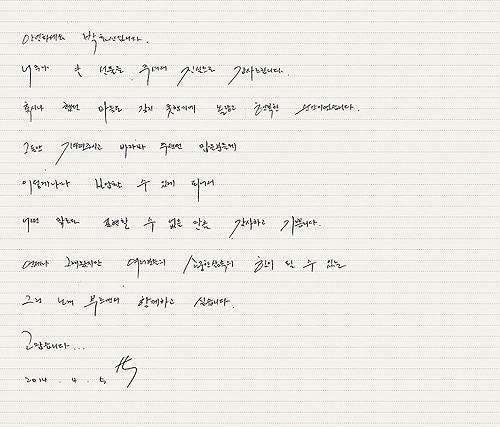 안녕하세요 박효신입니다.
너무 큰 선물을 주셔서 진심으로 감사드립니다.
혹시나 했던 마음도 갖지 못했기에 놀랍고 행복한 순간이었습니다.
그동안 기다려주시고 바라봐 주셨던 많은분들께
이렇게나마 보답할 수 있게 되어서
어떤 말로도 표현할 수 없을 만큼 감사하고 기쁩니다.
언제나 그래왔지만 여러분의 소중한 삶속의 힘이 될 수 있는
그런 노래 부르면서 함께하고 싶습니다.
고맙습니다...
2014 . 4 . 5